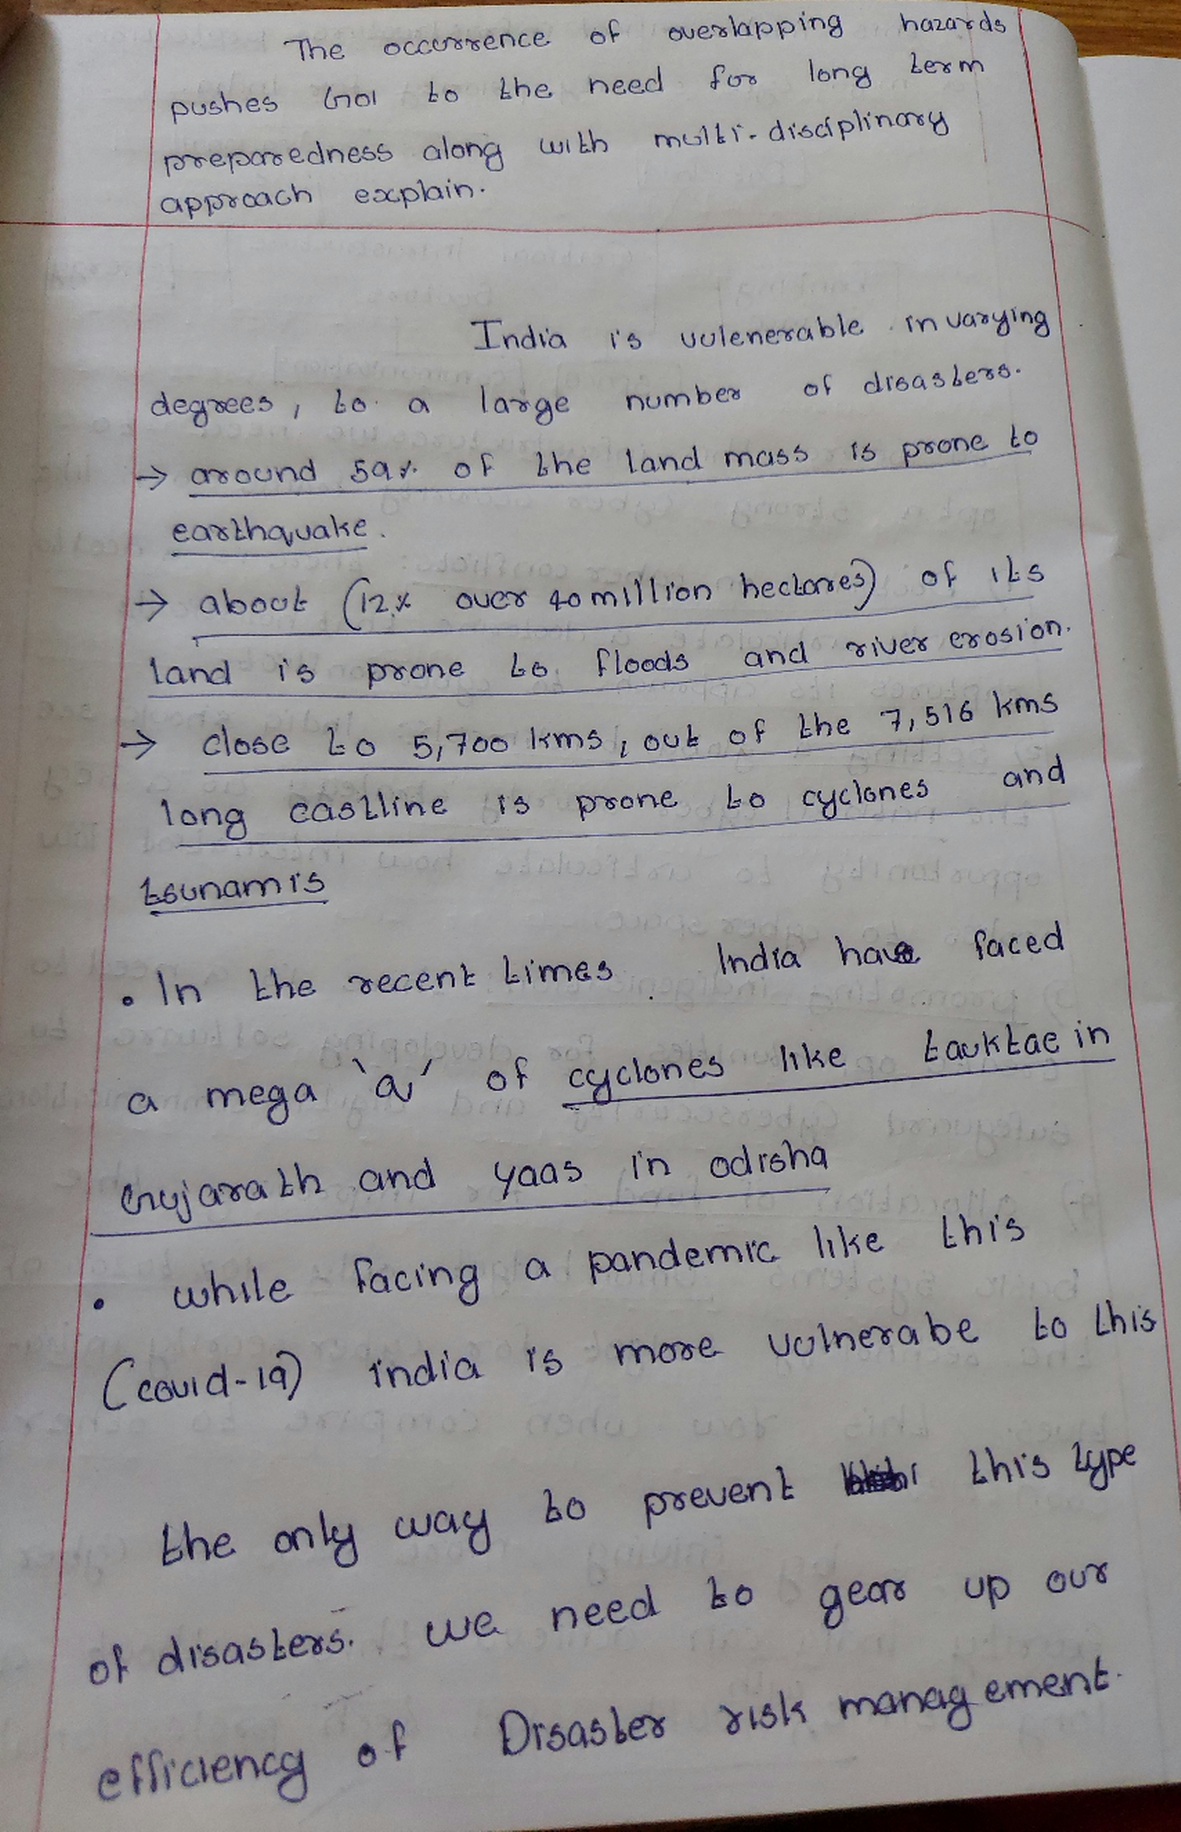 The occurrence of overlapping hazards
pushes GoI to the need for long term
preparedness along with multi-disciplinary
approach explain.
India is vulenerable in varying
degrees, to a large number of disasters.
→ around 59% of the land mass is prone to
earthquake.
→ about (12% over 40 million hectares) of its
land is prone to floods and river erosion.
→ close to 5,700 kms, out of the 7,516 kms
long castline is prone to cyclones and
tsunamis
• In the recent times India have faced
a mega 'a' of cyclones like tauktae in
Gujarath and yaas in odisha
• while facing a pandemic like this
(covid-19) india is more vulnerabe to this
the only way to prevent this type
of disasters. we need to gear up our
efficiency of Disaster risk management.